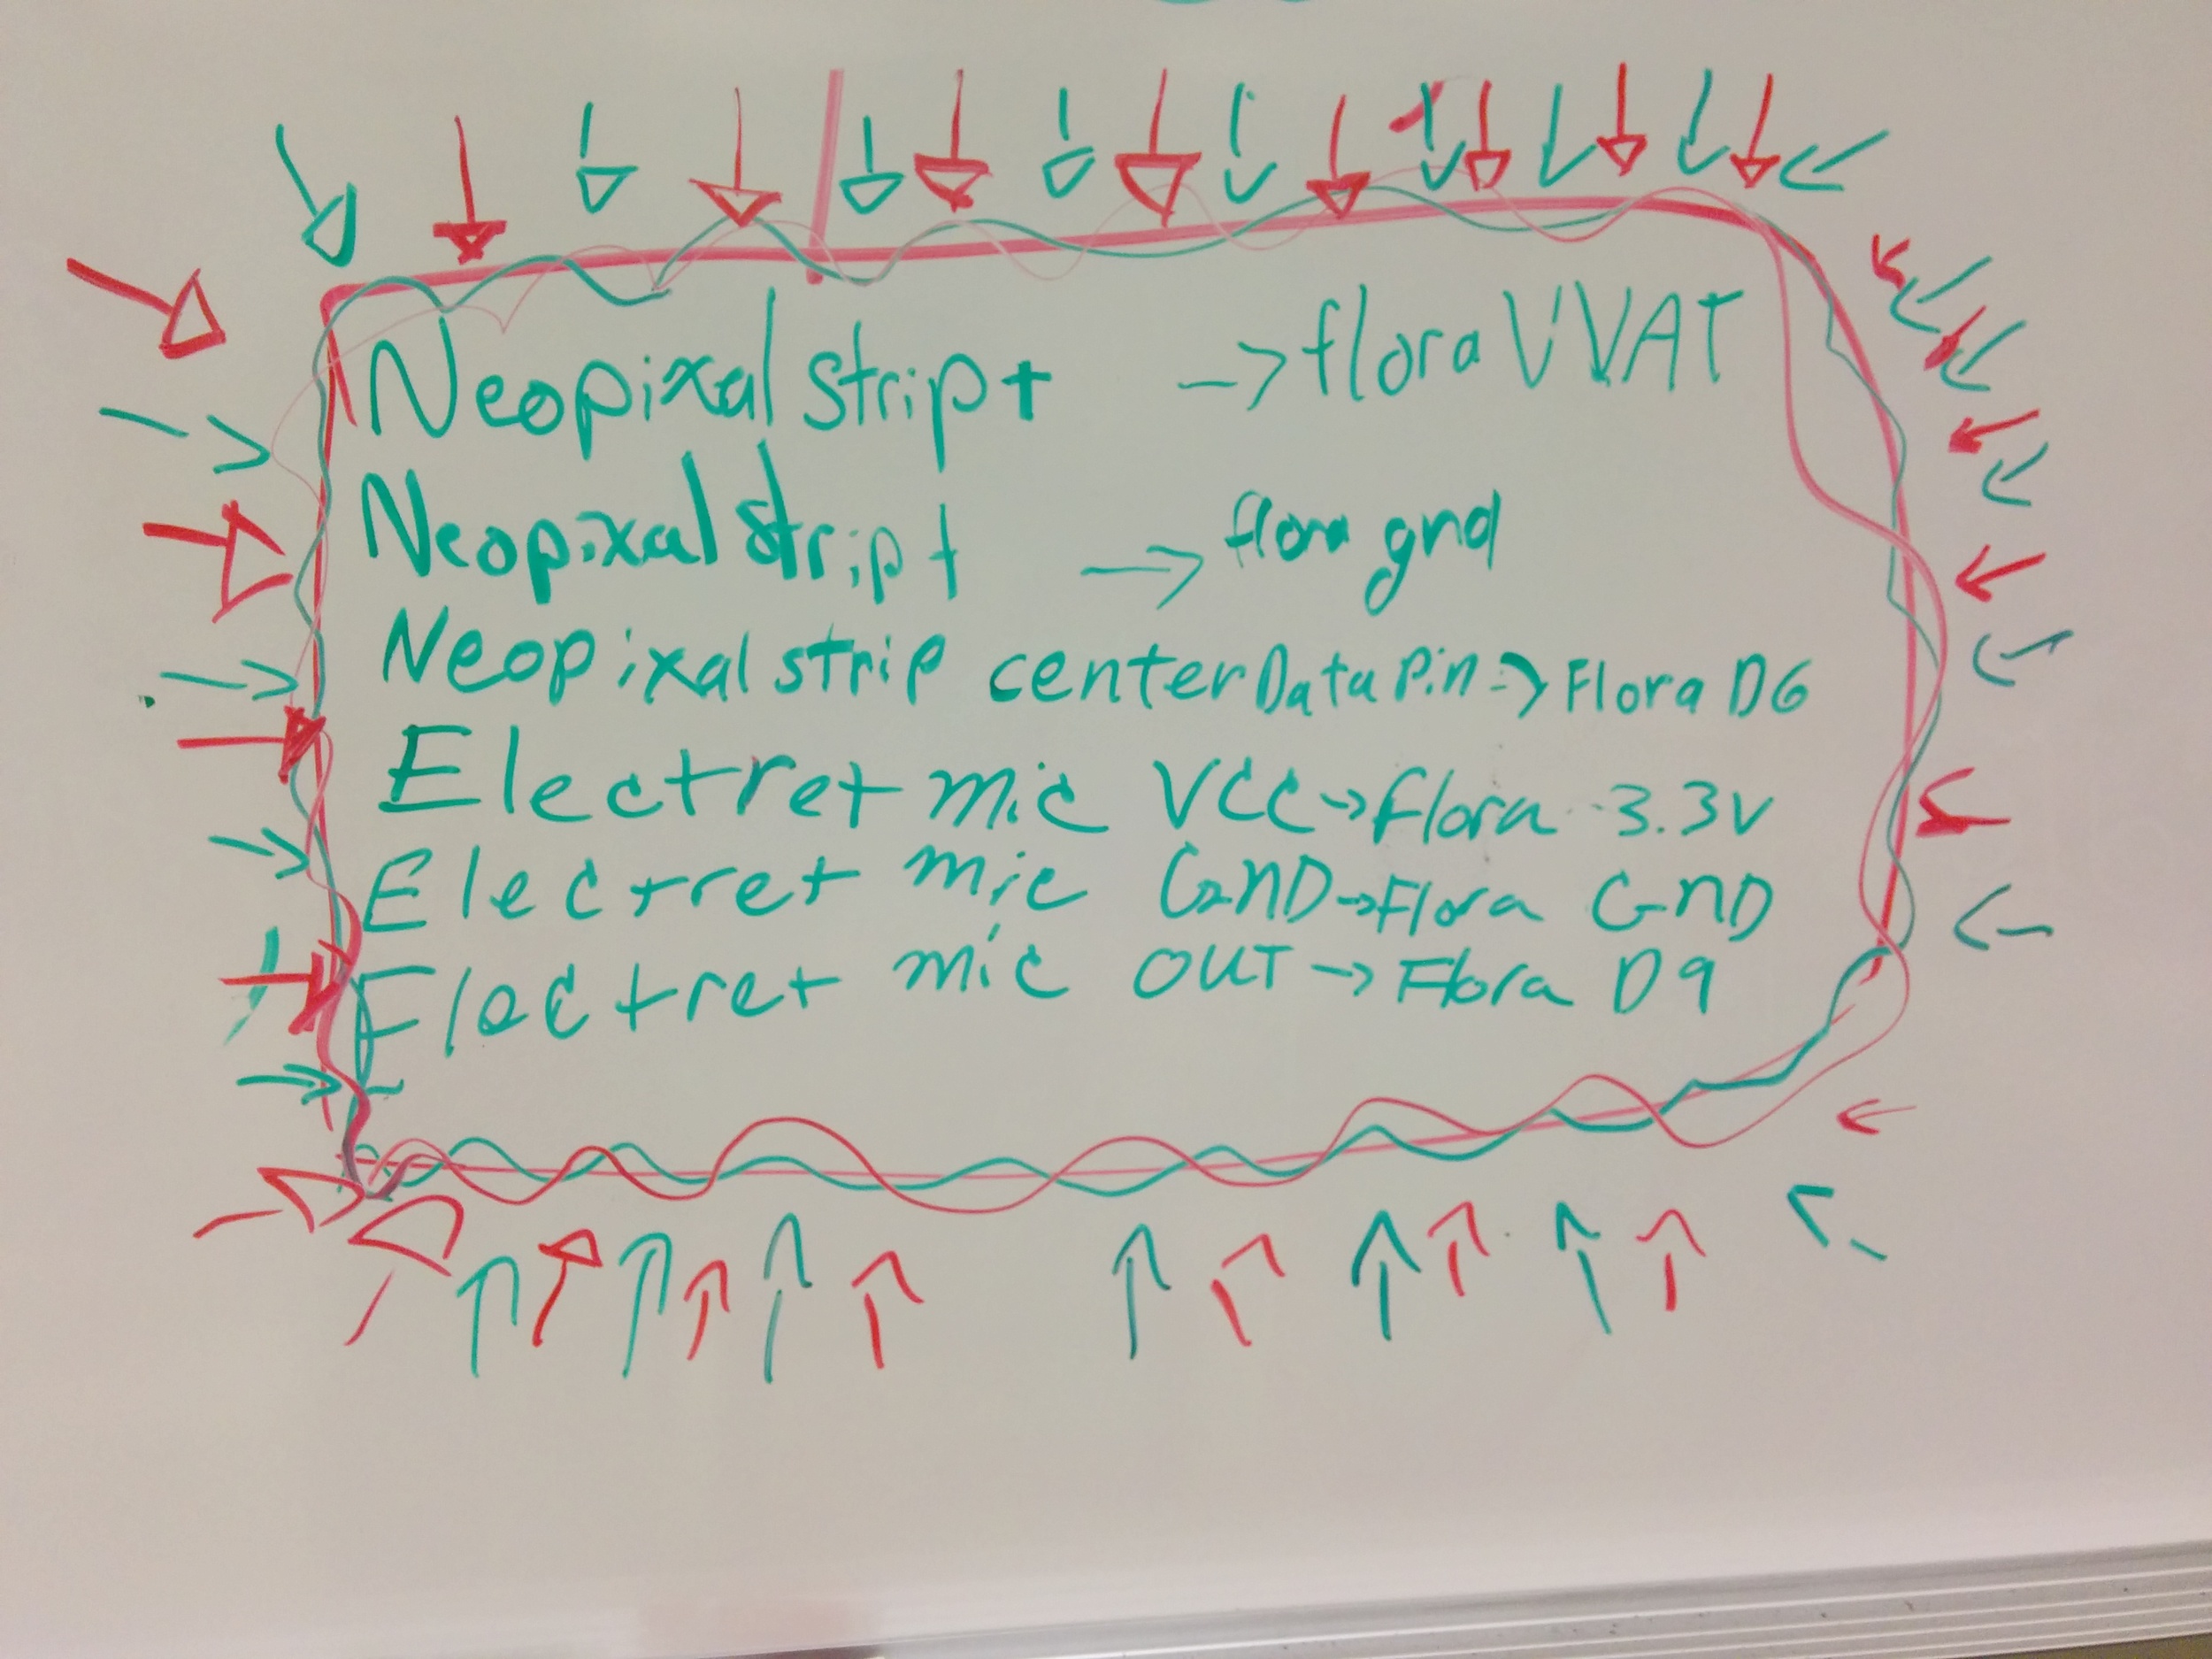 Neopixal strip + -> flora VVAT
Neopixal strip + -> flora gnd
Neopixal strip center Data Pin -> Flora D6
Electret mic VCC -> flora 3.3v
Electret mic GND -> Flora GND
Electret mic OUT -> Flora D9